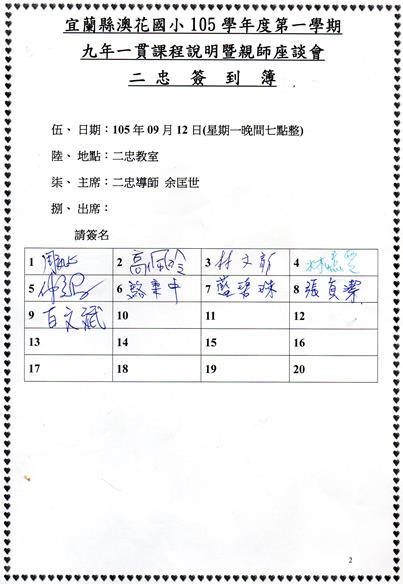 宜蘭縣澳花國小 105 學年度第一學期
九年一貫課程說明暨親師座談會
二 忠 簽 到 簿
伍、 日期：105 年 09 月 12 日(星期一晚間七點整)
陸、 地點：二忠教室
柒、 主席：二忠導師 余匡世
捌、 出席：
請簽名
1 2 3 林文 4 林
5 6 中 7 藍碧珠 8 張貞潔
9 百文斌 10 11 12
13 14 15 16
17 18 19 20
2